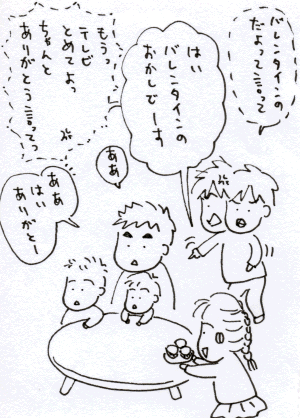 バレンタインの
だよって言って
はい
バレンタインの
おかしでーす
もうっ
テレビ
とめてよっ
ちゃんと
ありがとう言ってっ
ああ
ああ
はい
ありがとー